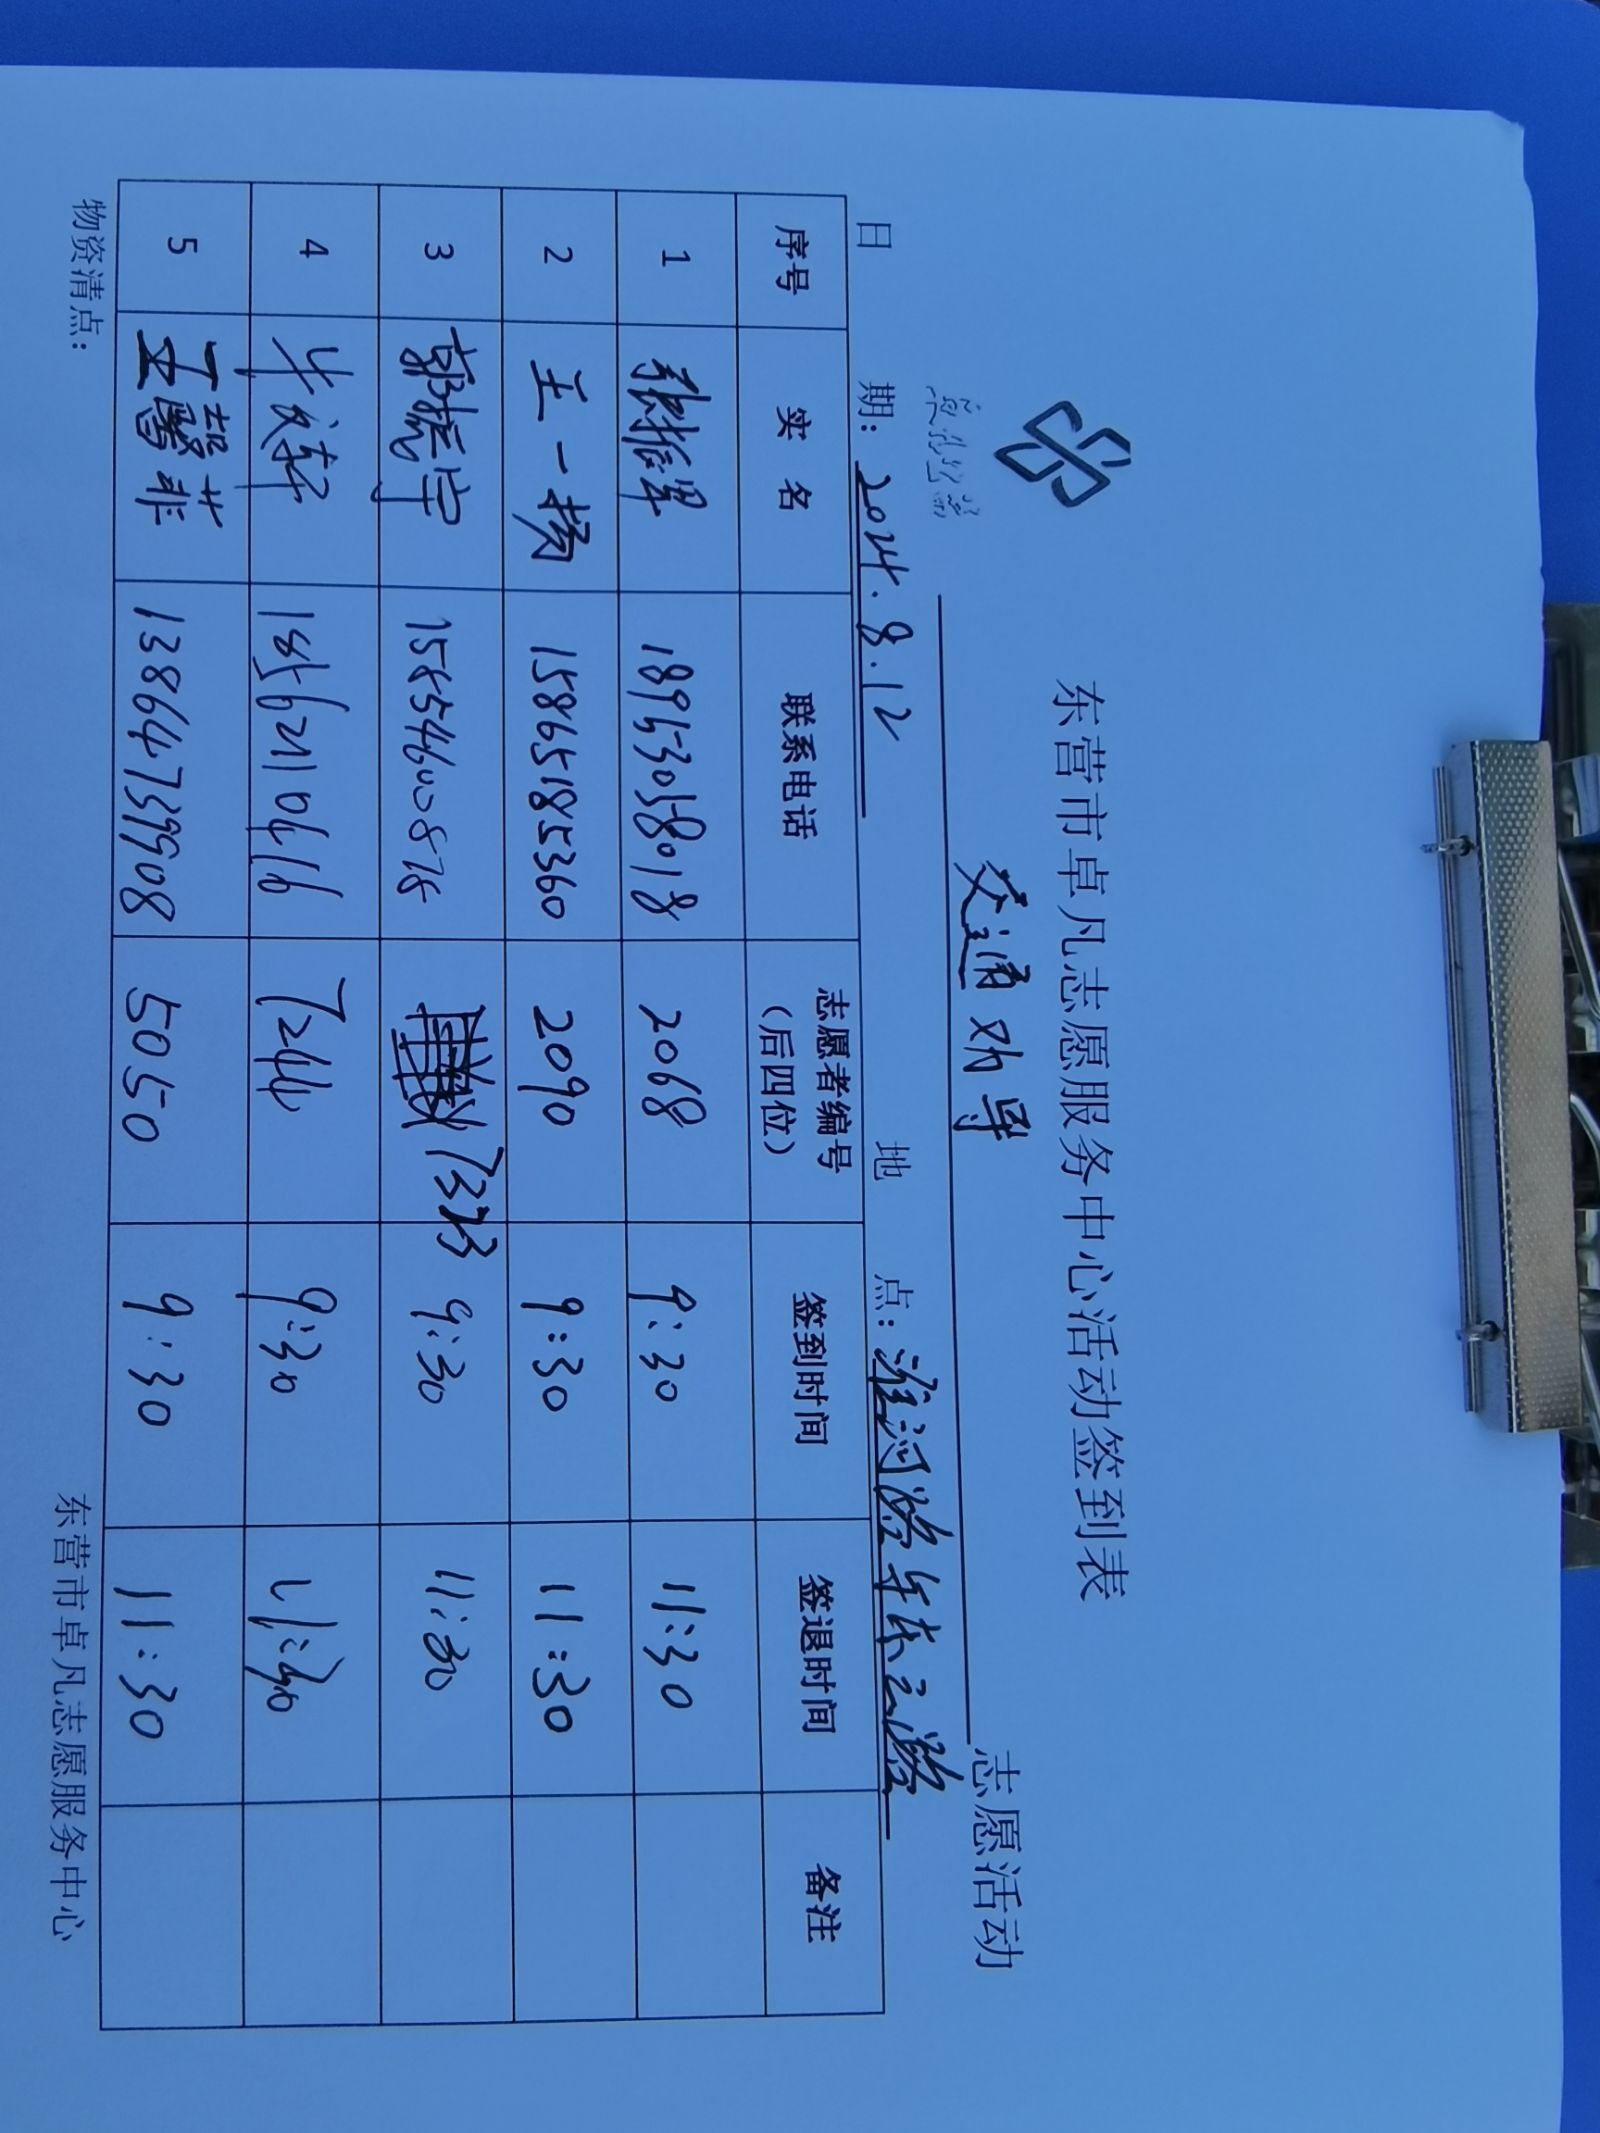 东营市卓凡志愿服务中心活动签到表
交通劝导 志愿活动
日 期: 2024.8.12 地 点: 淮河路与东三路
序号 实 名 联系电话 志愿者编号(后四位) 签到时间 签退时间 备注
1 张振军 18953058018 2068 9:30 11:30
2 王一杨 15865185360 2090 9:30 11:30
3 郭振宇 15854600878 7323 9:30 11:30
4 1562110416 7244 9:30 11:30
5 王馨菲 13864739908 5050 9:30 11:30
物资清点:
东营市卓凡志愿服务中心